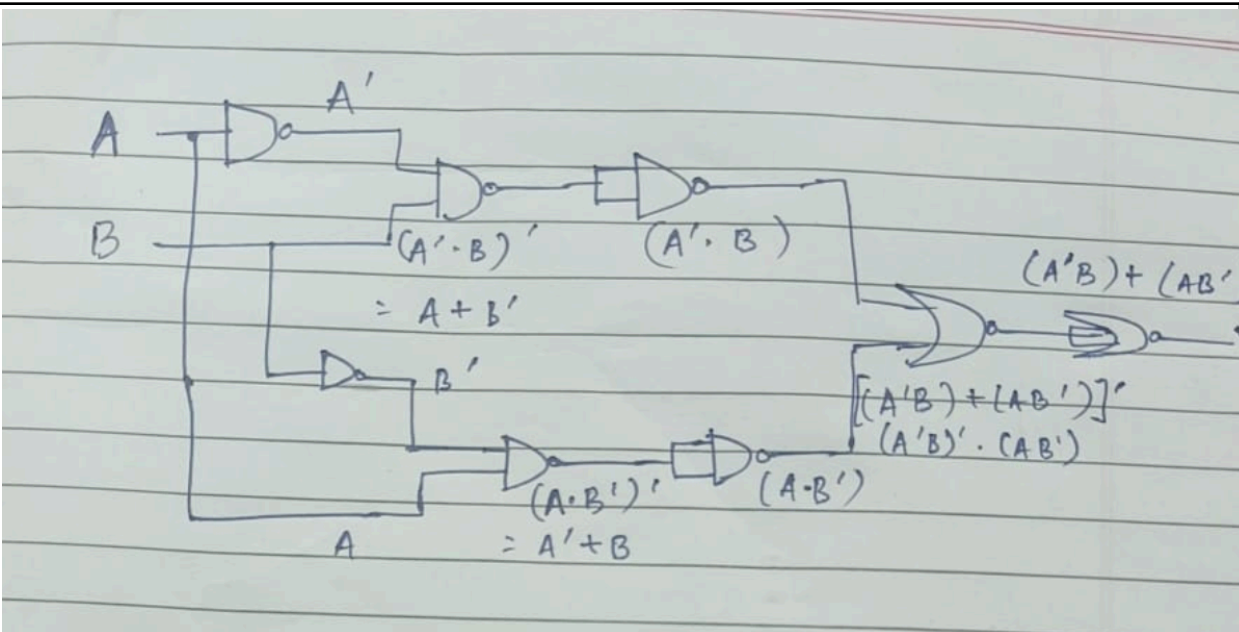 A'
A
B
(A'·B)'
(A'·B)
= A + B'
(A'B) + (AB'
B'
[(A'B) + (AB')]'
(A'B)' · (AB')
(A·B')'
(A·B')
A
= A' + B